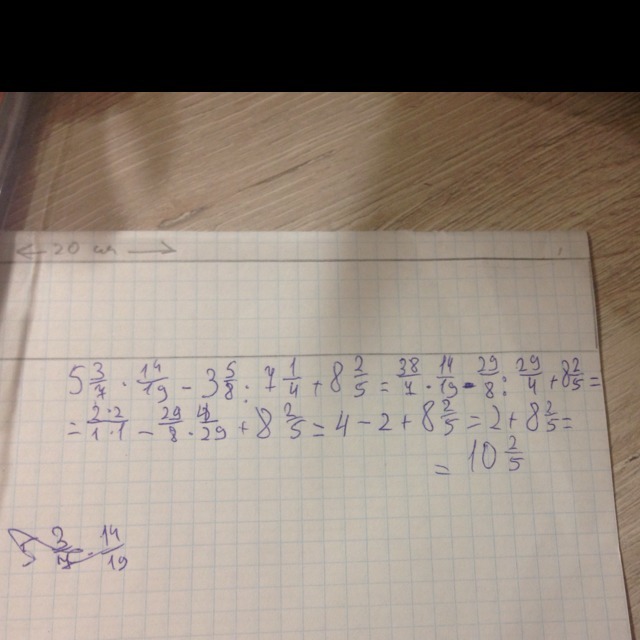 ← 20 см →
5 3/7 · 14/19 - 3 5/8 : 7 1/4 + 8 2/5 = 38/7 · 14/19 - 29/8 : 29/4 + 8 2/5 =
= 2·2/1·1 - 29/8 · 4/29 + 8 2/5 = 4 - 2 + 8 2/5 = 2 + 8 2/5 =
= 10 2/5
5 3/7 · 14/19